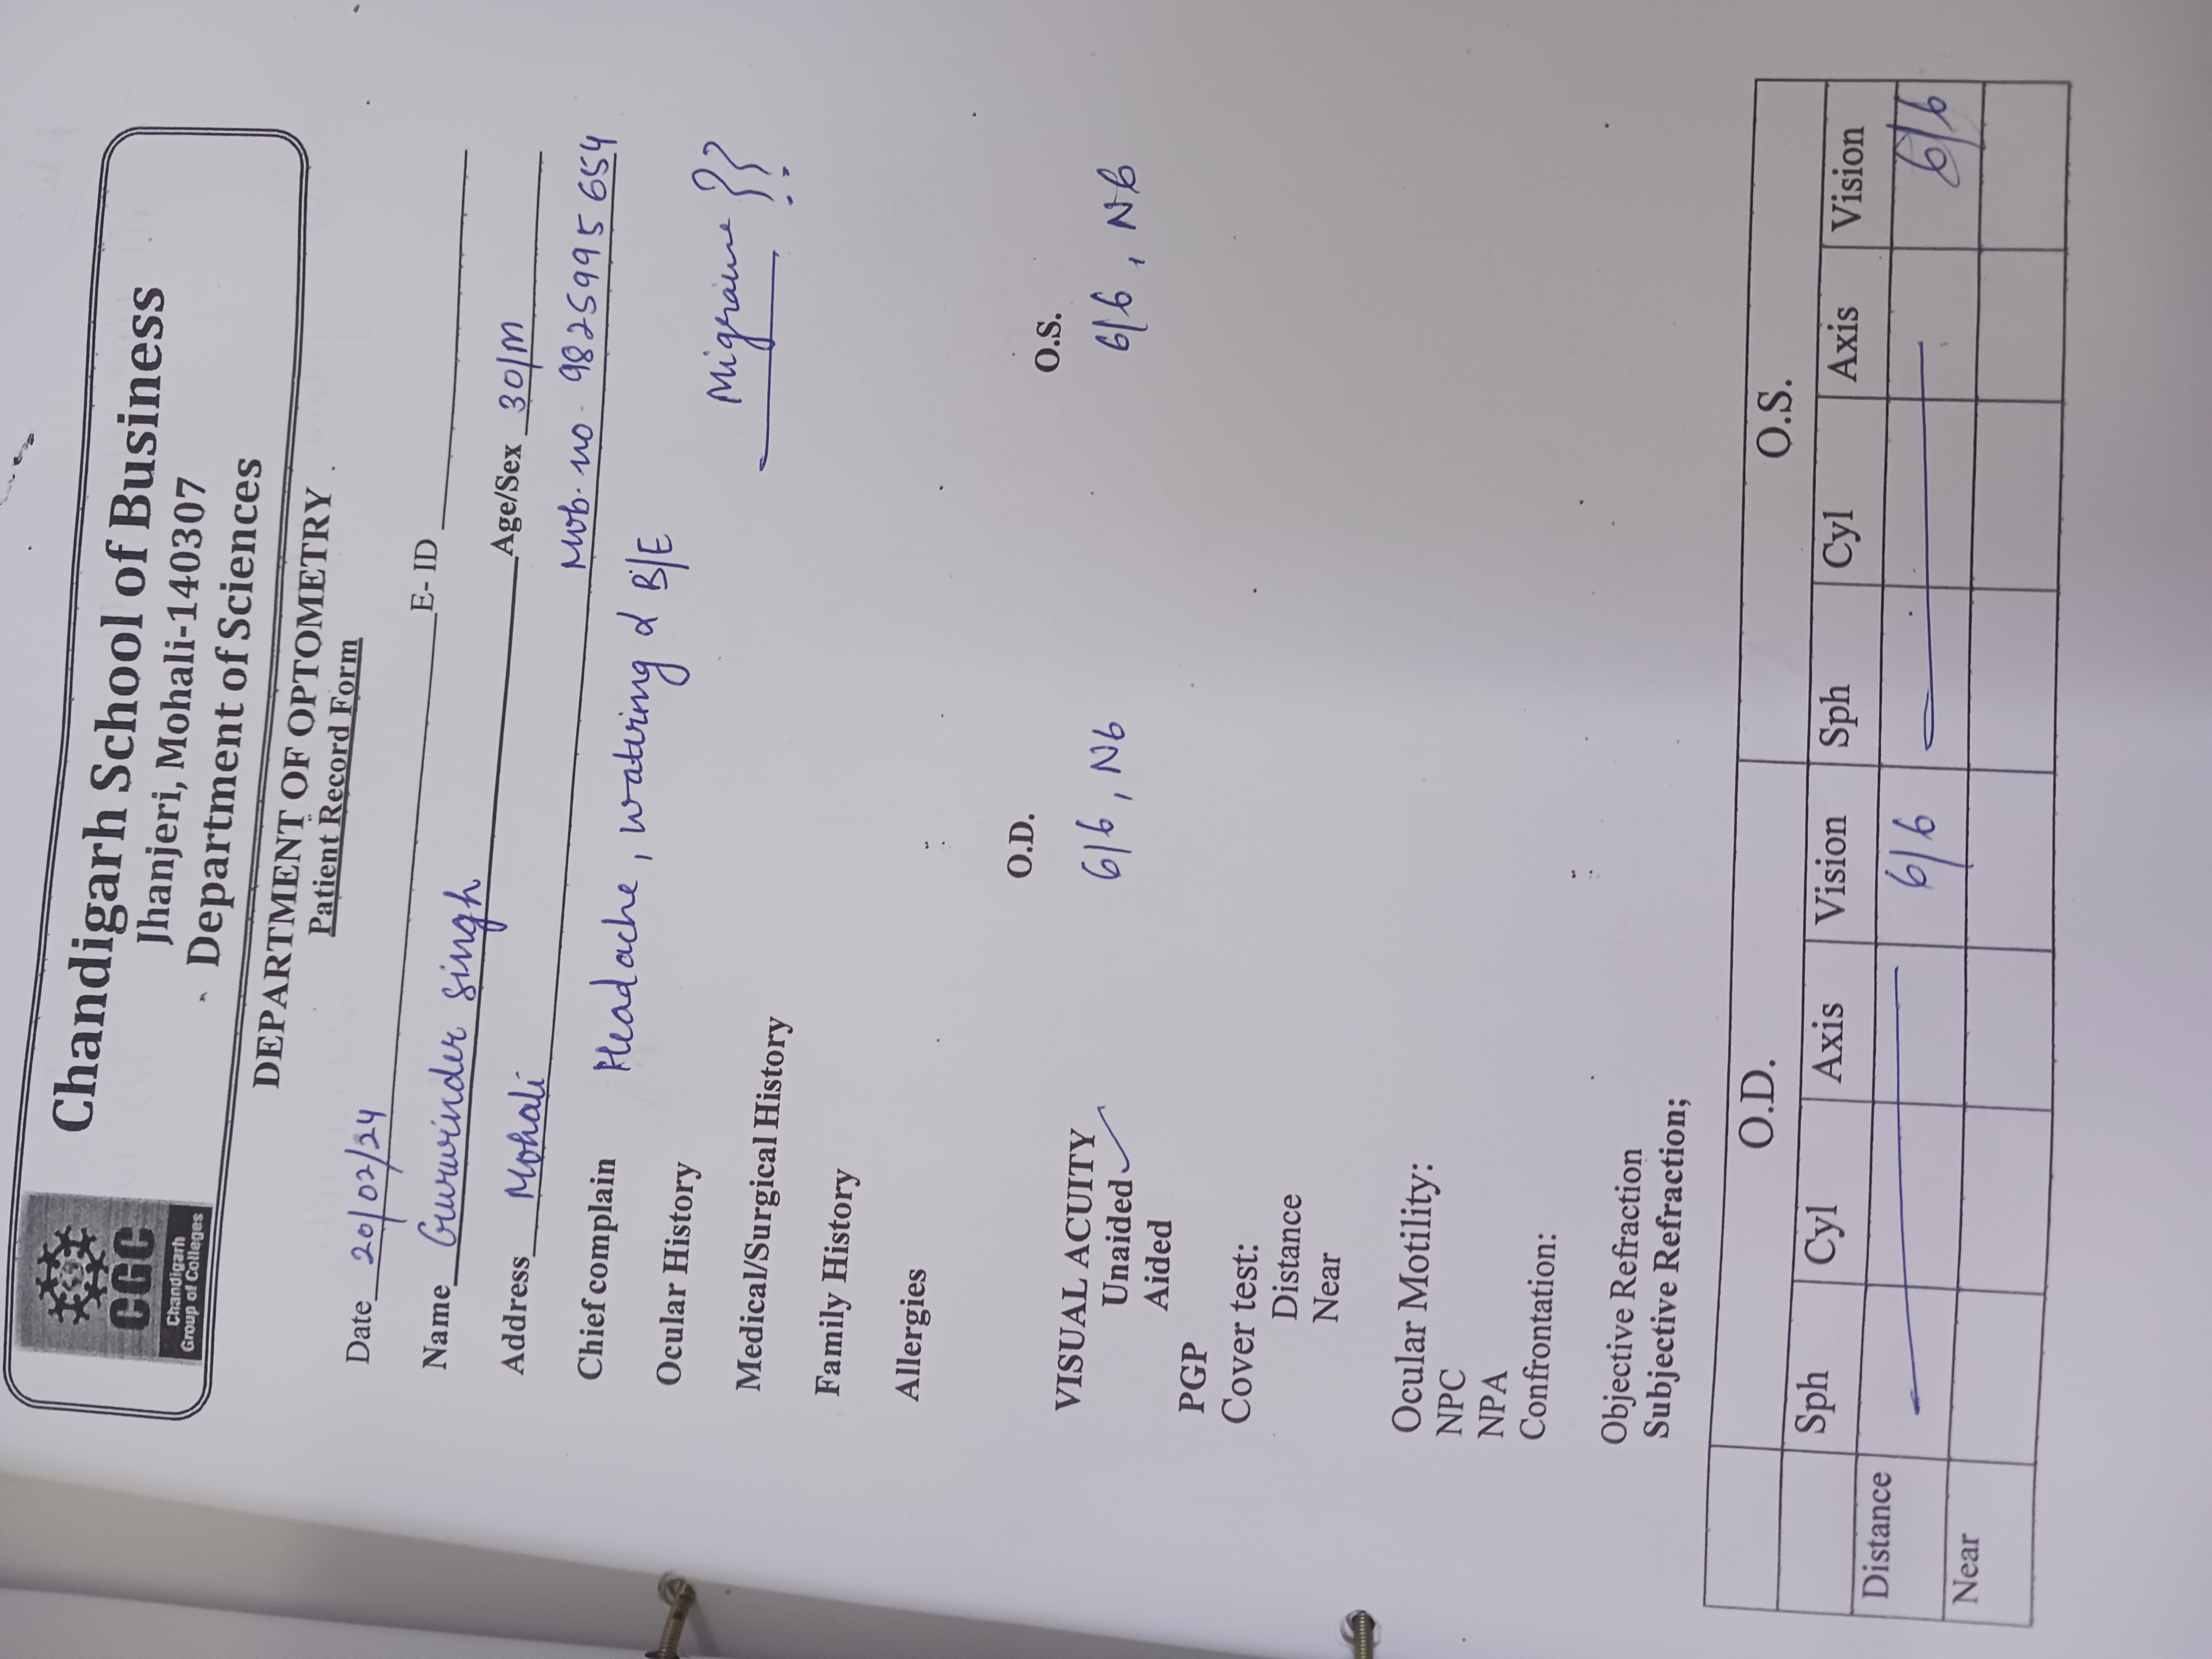 CGC
Chandigarh
Group of Colleges
Chandigarh School of Business
Jhanjeri, Mohali-140307
Department of Sciences
DEPARTMENT OF OPTOMETRY
Patient Record Form
Date 20/02/24
E- ID
Name Gurwinder singh
Age/Sex 30/M
Address Mohali
Mob. no. 9825995654
Chief complain Headache, watering d B/E
Ocular History
Migraine ??
Medical/Surgical History
Family History
Allergies
O.D. O.S.
VISUAL ACUITY
Unaided ✓ 6/6, N6 6/6, N6
Aided
PGP
Cover test:
Distance
Near
Ocular Motility:
NPC
NPA
Confrontation:
Objective Refraction
Subjective Refraction;
O.D. O.S.
Sph Cyl Axis Vision Sph Cyl Axis Vision
Distance 6/6 6/6
Near